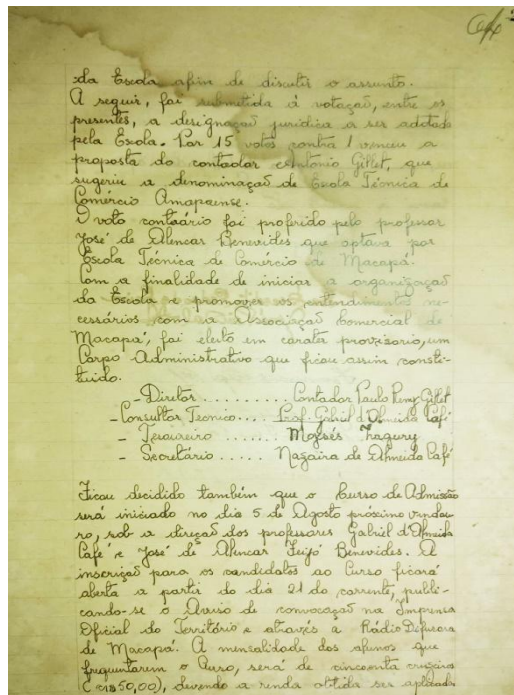 da Escola afim de discutir o assunto.
A seguir, foi submetida á votação, entre os
presentes, a designação juridica a ser adotada
pela Escola. Por 15 votos contra 1 venceu a
proposta do contador Antonio Gillet, que
sugeriu a denominação de Escola Técnica de
Comércio Amapaense.
O voto contrário foi proferido pelo professor
José de Alencar Benevides que optava por
Escola Técnica de Comércio de Macapá.
Com a finalidade de iniciar a organização
da Escola e promover os entendimentos ne-
cessários com a Associação Comercial de
Macapá, foi eleito em caráter provisório, um
Corpo Administrativo que ficou assim consti-
tuido.
- Diretor ......... Contador Paulo Remy Gillet
- Consultor Tecnico... Prof. Gabriel d'Almeida Café
- Tesoureiro ....... Moysés Zagury
- Secretário ..... Nazaira de Almeida Café
Ficou decidido também que o Curso de Admissão
será iniciado no dia 5 de Agosto próximo vindou-
ro, sob a direção dos professores Gabriel d'Almeida
Café e José de Alencar Feijó Benevides. A
inscrição para os candidatos ao Curso ficará
aberta a partir do dia 21 do corrente, publi-
cando-se o Aviso de convocação na Imprensa
Oficial do Território e através a Rádio Difusora
de Macapá. A mensalidade dos alunos que
frequentarem o Curso, será de cincoenta cruzeiros
(cr\$50,00), devendo a renda obtida ser aplicada